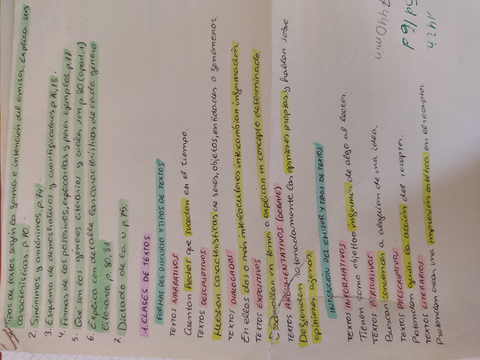 Tipos de textos según la forma e intención del emisor. Explica sus
características. p 70.
2. Sinónimos y antónimos. p 74.
3. Esquema de demostrativos y cuantificadores p 76, 78.
4. Formas de los posesivos, explicarlas y poner ejemplos. p 77
5. Que son los géneros literarios y cuales son p 80
6. Explica con detalle las características de cada género
literario p 80, 81
7. Dictado de la v p 75
1. CLASES DE TEXTOS
FORMAS DEL DISCURSO Y TIPOS DE TEXTOS
TEXTOS NARRATIVOS
Cuentan hechos que suceden en el tiempo.
TEXTOS DESCRIPTIVOS
Muestran características de seres, objetos, entidades o fenómenos.
TEXTOS DIALOGADOS
En ellos dos o más interlocutores intercambian información
TEXTOS EXPOSITIVOS
Desarrollan un tema o explican un concepto determinado
TEXTOS ARGUMENTATIVOS (DEBATE)
Defienden razonadamente las opiniones propias y hablan sobre
opiniones ajenas.
INTENCIÓN DEL EMISOR Y TIPOS DE TEXTOS
TEXTOS INFORMATIVOS
Tienen como objetivo informar de algo al lector.
TEXTOS PERSUASIVOS
Buscan convencer a alguien de una idea.
TEXTOS PRESCRIPTIVOS
Pretenden guiar la acción del receptor.
TEXTOS LITERARIOS
Pretenden crear una impresión estética en el receptor